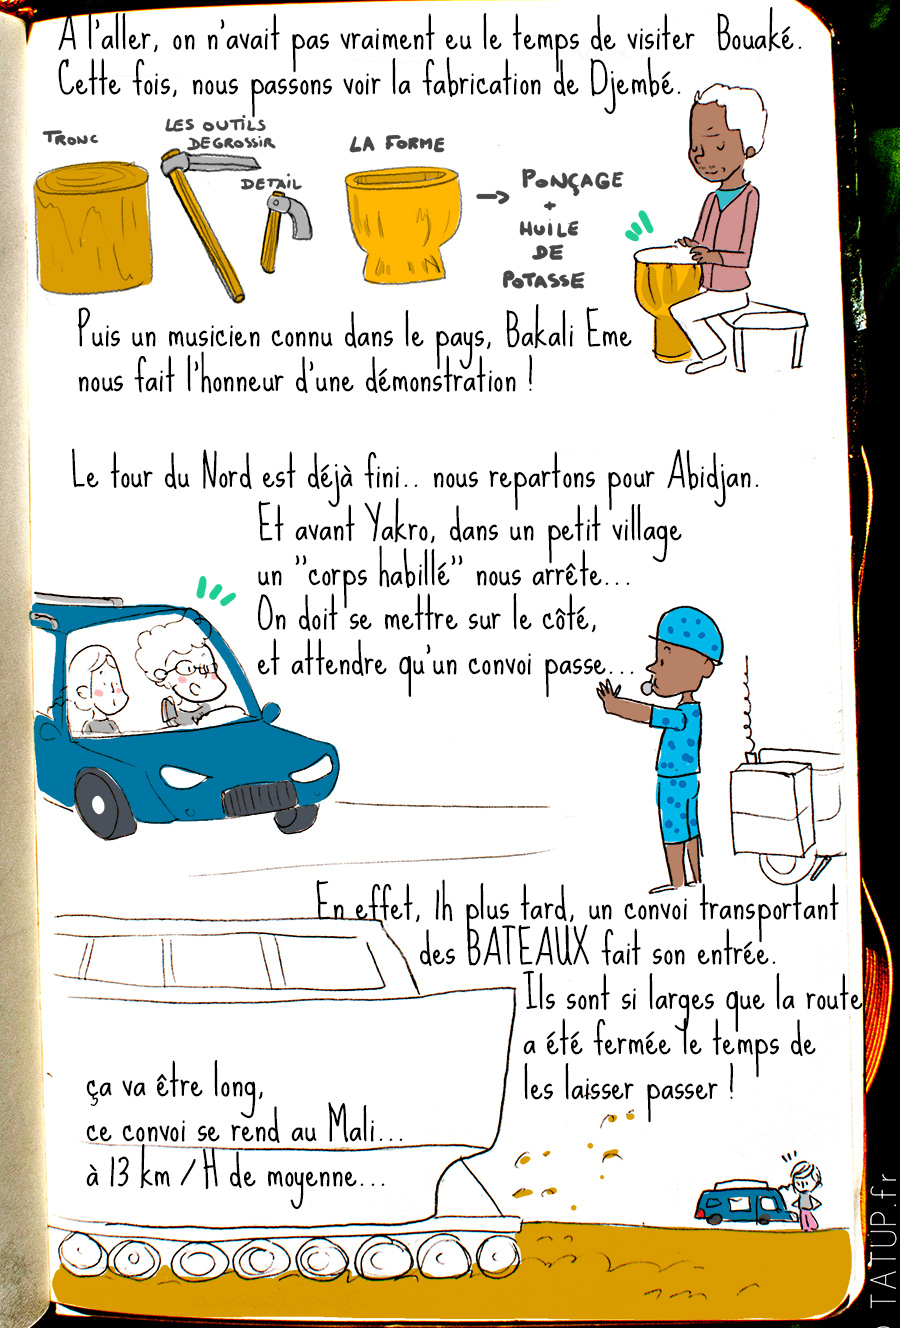 A l'aller, on n'avait pas vraiment eu le temps de visiter Bouaké.
Cette fois, nous passons voir la fabrication de Djembé.
TRONC
LES OUTILS
DEGROSSIR
DETAIL
LA FORME
→ PONÇAGE
+
HUILE
DE
POTASSE
Puis un musicien connu dans le pays, Bakali Eme
nous fait l'honneur d'une démonstration !
Le tour du Nord est déjà fini.. nous repartons pour Abidjan.
Et avant Yakro, dans un petit village
un "corps habillé" nous arrête...
On doit se mettre sur le côté,
et attendre qu'un convoi passe...
En effet, 1h plus tard, un convoi transportant
des BATEAUX fait son entrée.
Ils sont si larges que la route
a été fermée le temps de
les laisser passer !
ça va être long,
ce convoi se rend au Mali...
à 13 km / H de moyenne...
TATUP.fr